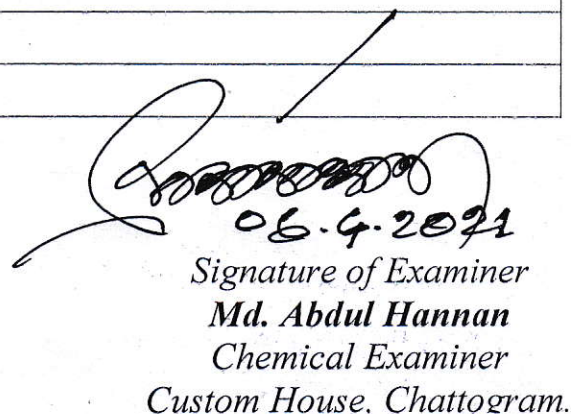 06.4.2021
Signature of Examiner
Md. Abdul Hannan
Chemical Examiner
Custom House, Chattogram.